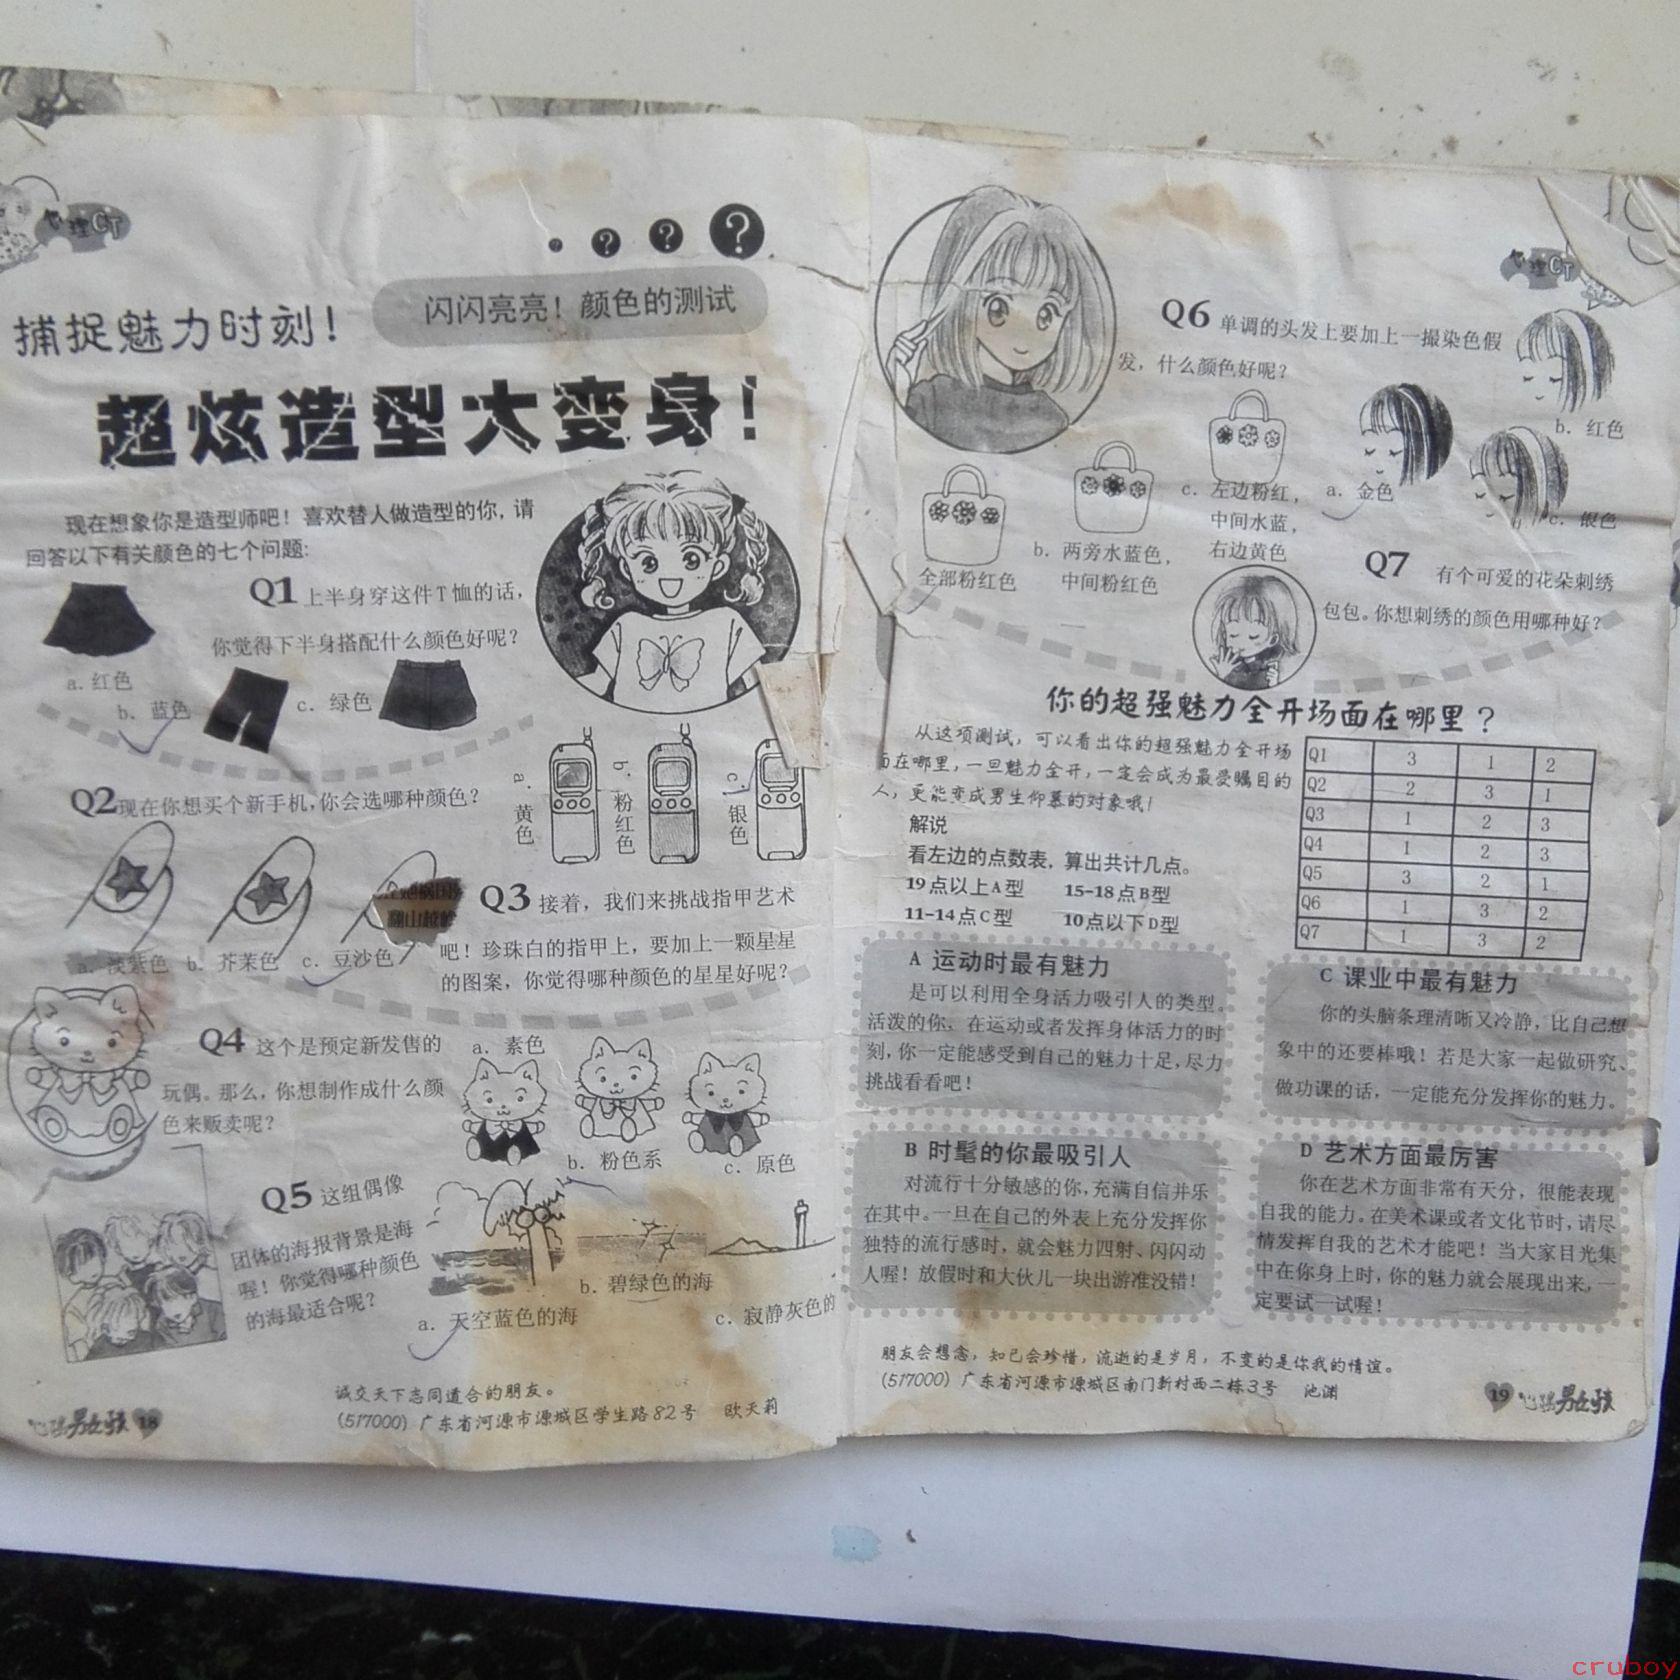 心理CT
捕捉魅力时刻！
闪闪亮亮！颜色的测试
超炫造型大变身！
现在想象你是造型师吧！喜欢替人做造型的你，请
回答以下有关颜色的七个问题：
Q1 上半身穿这件T恤的话，
你觉得下半身搭配什么颜色好呢？
a. 红色
b. 蓝色
c. 绿色
Q2 现在你想买个新手机，你会选哪种颜色？
a. 黄色
b. 粉红色
c. 银色
Q3 接着，我们来挑战指甲艺术
吧！珍珠白的指甲上，要加上一颗星星
的图案，你觉得哪种颜色的星星好呢？
a. 淡紫色
b. 芥茉色
c. 豆沙色
翻山越岭
Q4 这个是预定新发售的
玩偶。那么，你想制作成什么颜
色来贩卖呢？
a. 素色
b. 粉色系
c. 原色
Q5 这组偶像
团体的海报背景是海
喔！你觉得哪种颜色
的海最适合呢？
a. 天空蓝色的海
b. 碧绿色的海
c. 寂静灰色的
诚交天下志同道合的朋友。
(517000) 广东省河源市源城区学生路82号 欧天莉
18
心理CT
Q6 单调的头发上要加上一撮染色假
发，什么颜色好呢？
a. 金色
b. 红色
c. 银色
Q7 有个可爱的花朵刺绣
包包。你想刺绣的颜色用哪种好？
全部粉红色
b. 两旁水蓝色，
中间粉红色
c. 左边粉红，
中间水蓝，
右边黄色
你的超强魅力全开场面在哪里？
从这项测试，可以看出你的超强魅力全开场
面在哪里，一旦魅力全开，一定会成为最受瞩目的
人，更能变成男生仰慕的对象哦！
解说
看左边的点数表，算出共计几点。
19点以上A型 15-18点B型
11-14点C型 10点以下D型
Q1 3 1 2
Q2 2 3 1
Q3 1 2 3
Q4 1 2 3
Q5 3 2 1
Q6 1 3 2
Q7 1 3 2
A 运动时最有魅力
是可以利用全身活力吸引人的类型。
活泼的你，在运动或者发挥身体活力的时
刻，你一定能感受到自己的魅力十足，尽力
挑战看看吧！
B 时髦的你最吸引人
对流行十分敏感的你，充满自信并乐
在其中。一旦在自己的外表上充分发挥你
独特的流行感时，就会魅力四射、闪闪动
人喔！放假时和大伙儿一块出游准没错！
C 课业中最有魅力
你的头脑条理清晰又冷静，比自己想
象中的还要棒哦！若是大家一起做研究、
做功课的话，一定能充分发挥你的魅力。
D 艺术方面最厉害
你在艺术方面非常有天分，很能表现
自我的能力。在美术课或者文化节时，请尽
情发挥自我的艺术才能吧！当大家目光集
中在你身上时，你的魅力就会展现出来，一
定要试一试喔！
朋友会想念，知已会珍惜，流逝的是岁月，不变的是你我的情谊。
(517000) 广东省河源市源城区南门新村西二栋3号 池渊
19
cruboy